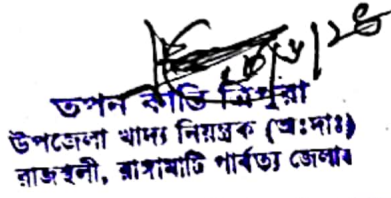 তপন কান্তি ত্রিপুরা
উপজেলা খাদ্য নিয়ন্ত্রক (অঃদাঃ)
রাজস্থলী, রাঙ্গামাটি পার্বত্য জেলা।